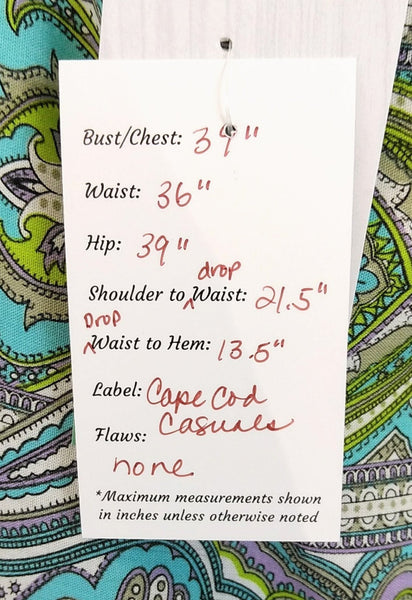 Bust/Chest: 39"
Waist: 36"
Hip: 39"
drop
Shoulder to ^ Waist: 21.5"
Drop
^ Waist to Hem: 13.5"
Label: Cape Cod
Casuals
Flaws:
none
*Maximum measurements shown
in inches unless otherwise noted